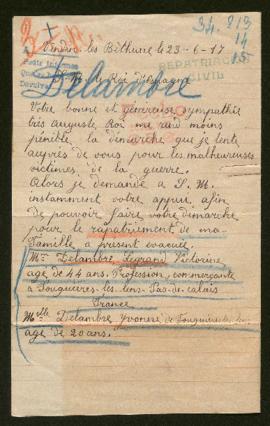 34.813
14
15
Vendin les Béthune le 23-6-17
REPATRIÉ
CIVIL
S. M. le Roi d'Espagne
Delambre
Votre bonne et généreuse sympathie
très Auguste Roi me rend moins
pénible la démarche que je tente
auprès de vous pour les malheureuses
victimes de la guerre.
Alors je demande à S. M.
instamment votre appui, afin
de pouvoir faire votre démarche
pour le rapatriement de ma
famille à présent évacuée.
Me Delambre Legrand Victorine
age de 44 ans. Profession, commerçante
à Fouquières-les-lens Pas-de-calais
France
Melle Delambre Yvonne de Fouquières les lens
age de 20 ans.